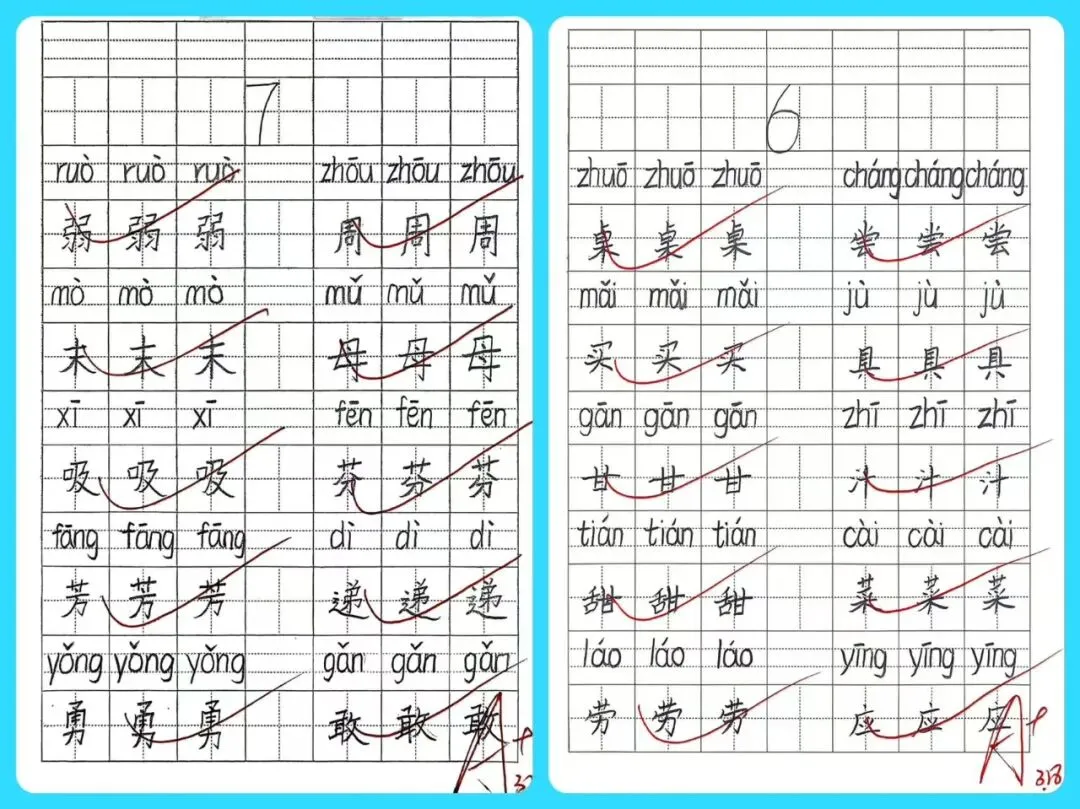 7
ruò ruò ruò zhōu zhōu zhōu
弱 弱 弱 周 周 周
mò mò mò mǔ mǔ mǔ
末 末 末 母 母 母
xī xī xī fēn fēn fēn
吸 吸 吸 芬 芬 芬
fāng fāng fāng dì dì dì
芳 芳 芳 递 递 递
yǒng yǒng yǒng gǎn gǎn gǎn
勇 勇 勇 敢 敢 敢
A+
6
zhuō zhuō zhuō cháng cháng cháng
桌 桌 桌 尝 尝 尝
mǎi mǎi mǎi jù jù jù
买 买 买 具 具 具
gān gān gān zhī zhī zhī
甘 甘 甘 汁 汁 汁
tián tián tián cài cài cài
甜 甜 甜 菜 菜 菜
láo láo láo yīng yīng yīng
劳 劳 劳 应 应 应
A+
3.18